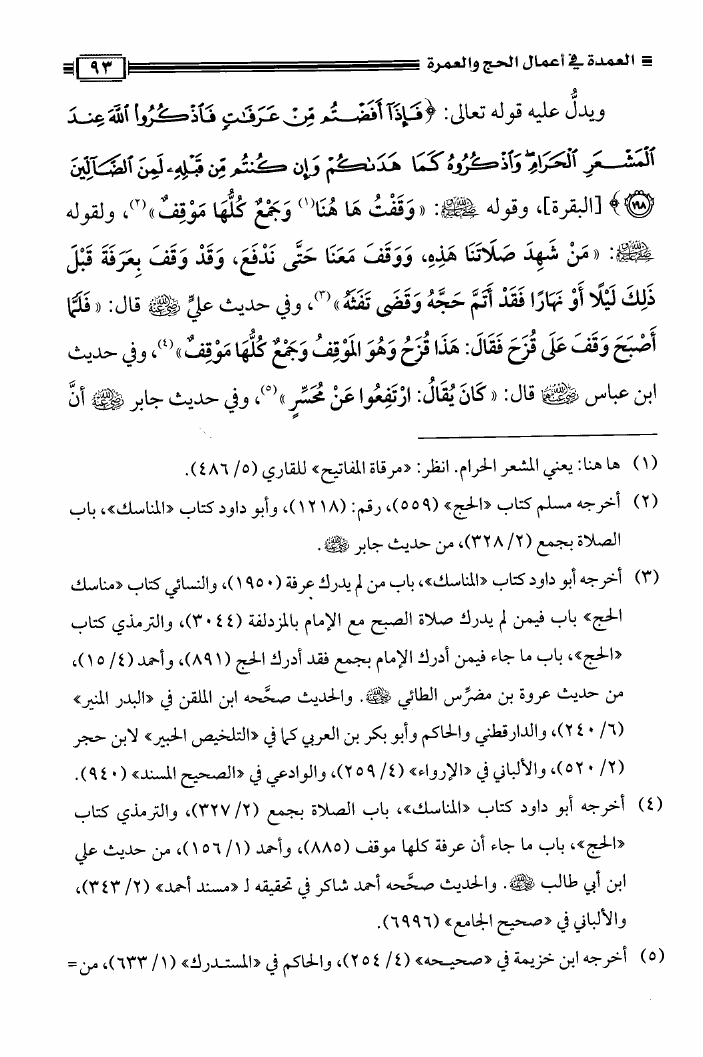 العمدة في أعمال الحج والعمرة ٩٣
ويدلُّ عليه قوله تعالى: ﴿فَإِذَآ أَفَضْتُم مِّنْ عَرَفَٰتٍ فَٱذْكُرُوا۟ ٱللَّهَ عِندَ
ٱلْمَشْعَرِ ٱلْحَرَامِ ۖ وَٱذْكُرُوهُ كَمَا هَدَىٰكُمْ وَإِن كُنتُم مِّن قَبْلِهِۦ لَمِنَ ٱلضَّآلِّينَ
﴿١٩٨﴾﴾ [البقرة]، وقوله ﷺ: «وَقَفْتُ هَا هُنَا(١) وَجَمْعٌ كُلُّهَا مَوْقِفٌ»(٢)، ولقوله
ﷺ: «مَنْ شَهِدَ صَلَاتَنَا هَذِهِ، وَوَقَفَ مَعَنَا حَتَّى نَدْفَعَ، وَقَدْ وَقَفَ بِعَرَفَةَ قَبْلَ
ذَلِكَ لَيْلًا أَوْ نَهَارًا فَقَدْ أَتَمَّ حَجَّهُ وَقَضَى تَفَثَهُ»(٣)، وفي حديث عليٍّ رضي الله عنه قال: «فَلَمَّا
أَصْبَحَ وَقَفَ عَلَى قُزَحَ فَقَالَ: هَذَا قُزَحُ وَهُوَ المَوْقِفُ وَجَمْعٌ كُلُّهَا مَوْقِفٌ»(٤)، وفي حديث
ابن عباس رضي الله عنهما قال: «كَانَ يُقَالُ: ارْتَفِعُوا عَنْ مُحَسِّرٍ»(٥)، وفي حديث جابر رضي الله عنه أنَّ
(١) ها هنا: يعني المشعر الحرام. انظر: «مرقاة المفاتيح» للقاري (٥/ ٤٨٦).
(٢) أخرجه مسلم كتاب «الحج» (٥٥٩)، رقم: (١٢١٨)، وأبو داود كتاب «المناسك»، باب
الصلاة بجمع (٢/ ٣٢٨)، من حديث جابر رضي الله عنه.
(٣) أخرجه أبو داود كتاب «المناسك»، باب من لم يدرك عرفة (١٩٥٠)، والنسائي كتاب «مناسك
الحج» باب فيمن لم يدرك صلاة الصبح مع الإمام بالمزدلفة (٣٠٤٤)، والترمذي كتاب
«الحج»، باب ما جاء فيمن أدرك الإمام بجمع فقد أدرك الحج (٨٩١)، وأحمد (٤/ ١٥)،
من حديث عروة بن مضرِّس الطائي رضي الله عنه. والحديث صحَّحه ابن الملقن في «البدر المنير»
(٦/ ٢٤٠)، والدارقطني والحاكم وأبو بكر بن العربي كما في «التلخيص الحبير» لابن حجر
(٢/ ٥٢٠)، والألباني في «الإرواء» (٤/ ٢٥٩)، والوادعي في «الصحيح المسند» (٩٤٠).
(٤) أخرجه أبو داود كتاب «المناسك»، باب الصلاة بجمع (٢/ ٣٢٧)، والترمذي كتاب
«الحج»، باب ما جاء أن عرفة كلها موقف (٨٨٥)، وأحمد (١/ ١٥٦)، من حديث علي
ابن أبي طالب رضي الله عنه. والحديث صحَّحه أحمد شاكر في تحقيقه لـ «مسند أحمد» (٢/ ٣٤٣)،
والألباني في «صحيح الجامع» (٦٩٩٦).
(٥) أخرجه ابن خزيمة في «صحيحه» (٤/ ٢٥٤)، والحاكم في «المستدرك» (١/ ٦٣٣)، من =